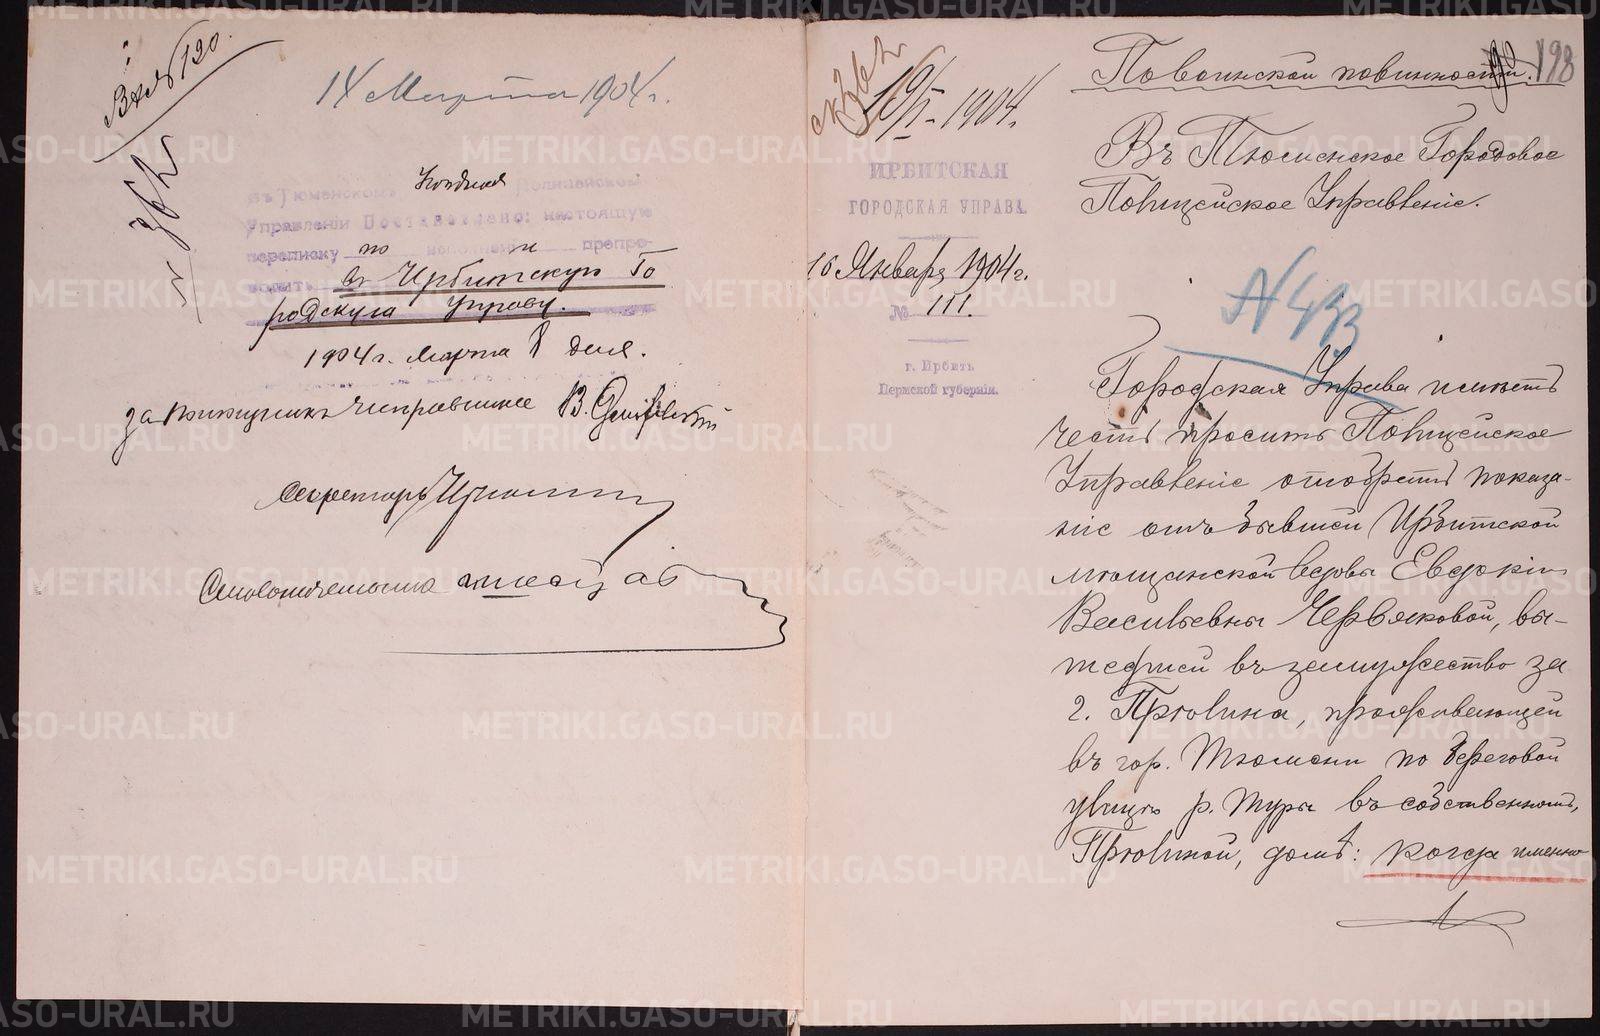 Вход 120.
14 Марта 1904 г.
въ Тюменскомъ Полицейском
Управленіи Постановлено: настоящую
переписку по исполнени и препро-
водить в Ирбитскую Го
родскую Управу.
1904 г. Марта 8 дня.
за Помощникъ исправника В.
Секретарь
Столоначальникъ
198
19/I - 1904 г.
ИРБИТСКАЯ
ГОРОДСКАЯ УПРАВА.
16 Января 1904 г.
№ 111.
г. Ирбить
Пермской губерніи.
По воинской повинности.
Въ Тюменское Городовое
Полицейское Управленіе.
N 433
Городская Управа имѣетъ
честь просить Полицейское
Управленіе отобрать показа-
ніе отъ бывшей Ирбитской
мѣщанской вдовы Евдокіи
Васильевны Червяковой, вы-
шедшей въ замужество за
г. Пргвлина, проживающей
въ гор. Тюмени по береговой
улицѣ р. Туры въ собственномъ,
домѣ: когда именно
METRIKI.GASO-URAL.RU